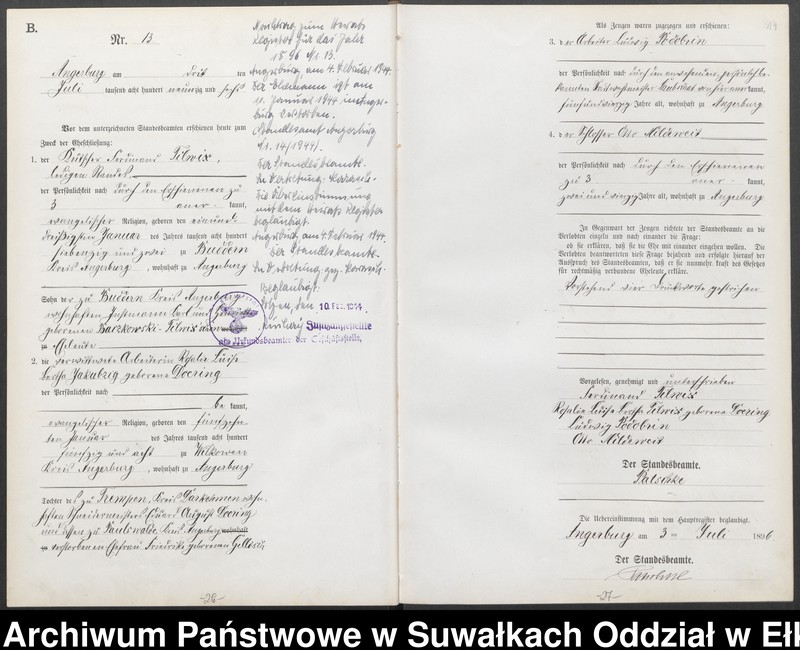 B.
Nr. 13
Angerburg am drit ten
Juli tausend acht hundert neunzig und sechs
Vor dem unterzeichneten Standesbeamten erschienen heute zum
Zweck der Eheschließung:
1. der Kutscher Ferdinand Tilwix,
ledigen Standes
der Persönlichkeit nach durch den Erschienenen zu
3 aner kannt,
evangelischer Religion, geboren den einund
dreißigsten Januar des Jahres tausend acht hundert
siebenzig und zu Buddern
Kreis Angerburg, wohnhaft zu Angerburg
Sohn de zu Buddern Kreis Angerburg
wohnhaften Carl und
geborenen Baczkowski-Tilwix
zu Eheleute
2. die verwittwete Arbeiterin Rosalie Luise
Bertha geborene Doering
der Persönlichkeit nach
be kannt,
evangelischer Religion, geboren den fünfzehn
ten Januar des Jahres tausend acht hundert
fünfzig und acht zu Wilkowen
Kreis Angerburg, wohnhaft zu Angerburg
Tochter des zu Trempen, Kreis Darkehmen wohn
haften Schneidermeisters Eduard August Doering
und dessen zu Paulswalde Kreis Angerburg wohnhaft
zu verstorbenen Ehefrau Friederike geborenen
Nachtrag zum Heirats
Register für das Jahr
1896 Nr. 13.
Angerburg, am 4. Februar 1944
Der Ehemann ist am
11. Januar 1944 in Anger-
burg verstorben.
(Standesamt Angerburg
Nr. 14/1944).
Der Standesbeamte.
In Vertretung:
Die Übereinstimmung
mit dem Heirats Register
beglaubigt.
Angerburg, am 4. Februar 1944.
Der Standesbeamte
In Vertretung gez.
Beglaubigt:
den 10. Feb. 1944
Justizangestellte
als Urkundsbeamter der Geschäftsstelle.
-26-
Als Zeugen waren zugezogen und erschienen:
3. der Arbeiter Ludwig Podobrin
der Persönlichkeit nach durch den anwesenden, persönlich be-
kannten aner kannt,
fünfundvierzig Jahre alt, wohnhaft zu Angerburg
4. der Schlosser Otto Miläweit
der Persönlichkeit nach durch den Erschienenen
zu 3 aner kannt,
zwei und vierzig Jahre alt, wohnhaft zu Angerburg
In Gegenwart der Zeugen richtete der Standesbeamte an die
Verlobten einzeln und nach einander die Frage:
ob sie erklären, daß sie die Ehe mit einander eingehen wollen. Die
Verlobten beantworteten diese Frage bejahend und erfolgte hierauf der
Ausspruch des Standesbeamten, daß er sie nunmehr kraft des Gesetzes
für rechtmäßig verbundene Eheleute erkläre.
Vorstehend vier Druckworte gestrichen
Vorgelesen, genehmigt und unterschrieben
Ferdinand Tilwix
Rosalie Luise Bertha Tilwix geborene Doering
Ludwig Podobrin
Otto Miläweit
Der Standesbeamte.
Die Uebereinstimmung mit dem Hauptregister beglaubigt.
Angerburg am 3 ten Juli 1896
Der Standesbeamte.
-27-
Archiwum Państwowe w Suwałkach Oddział w Ełk